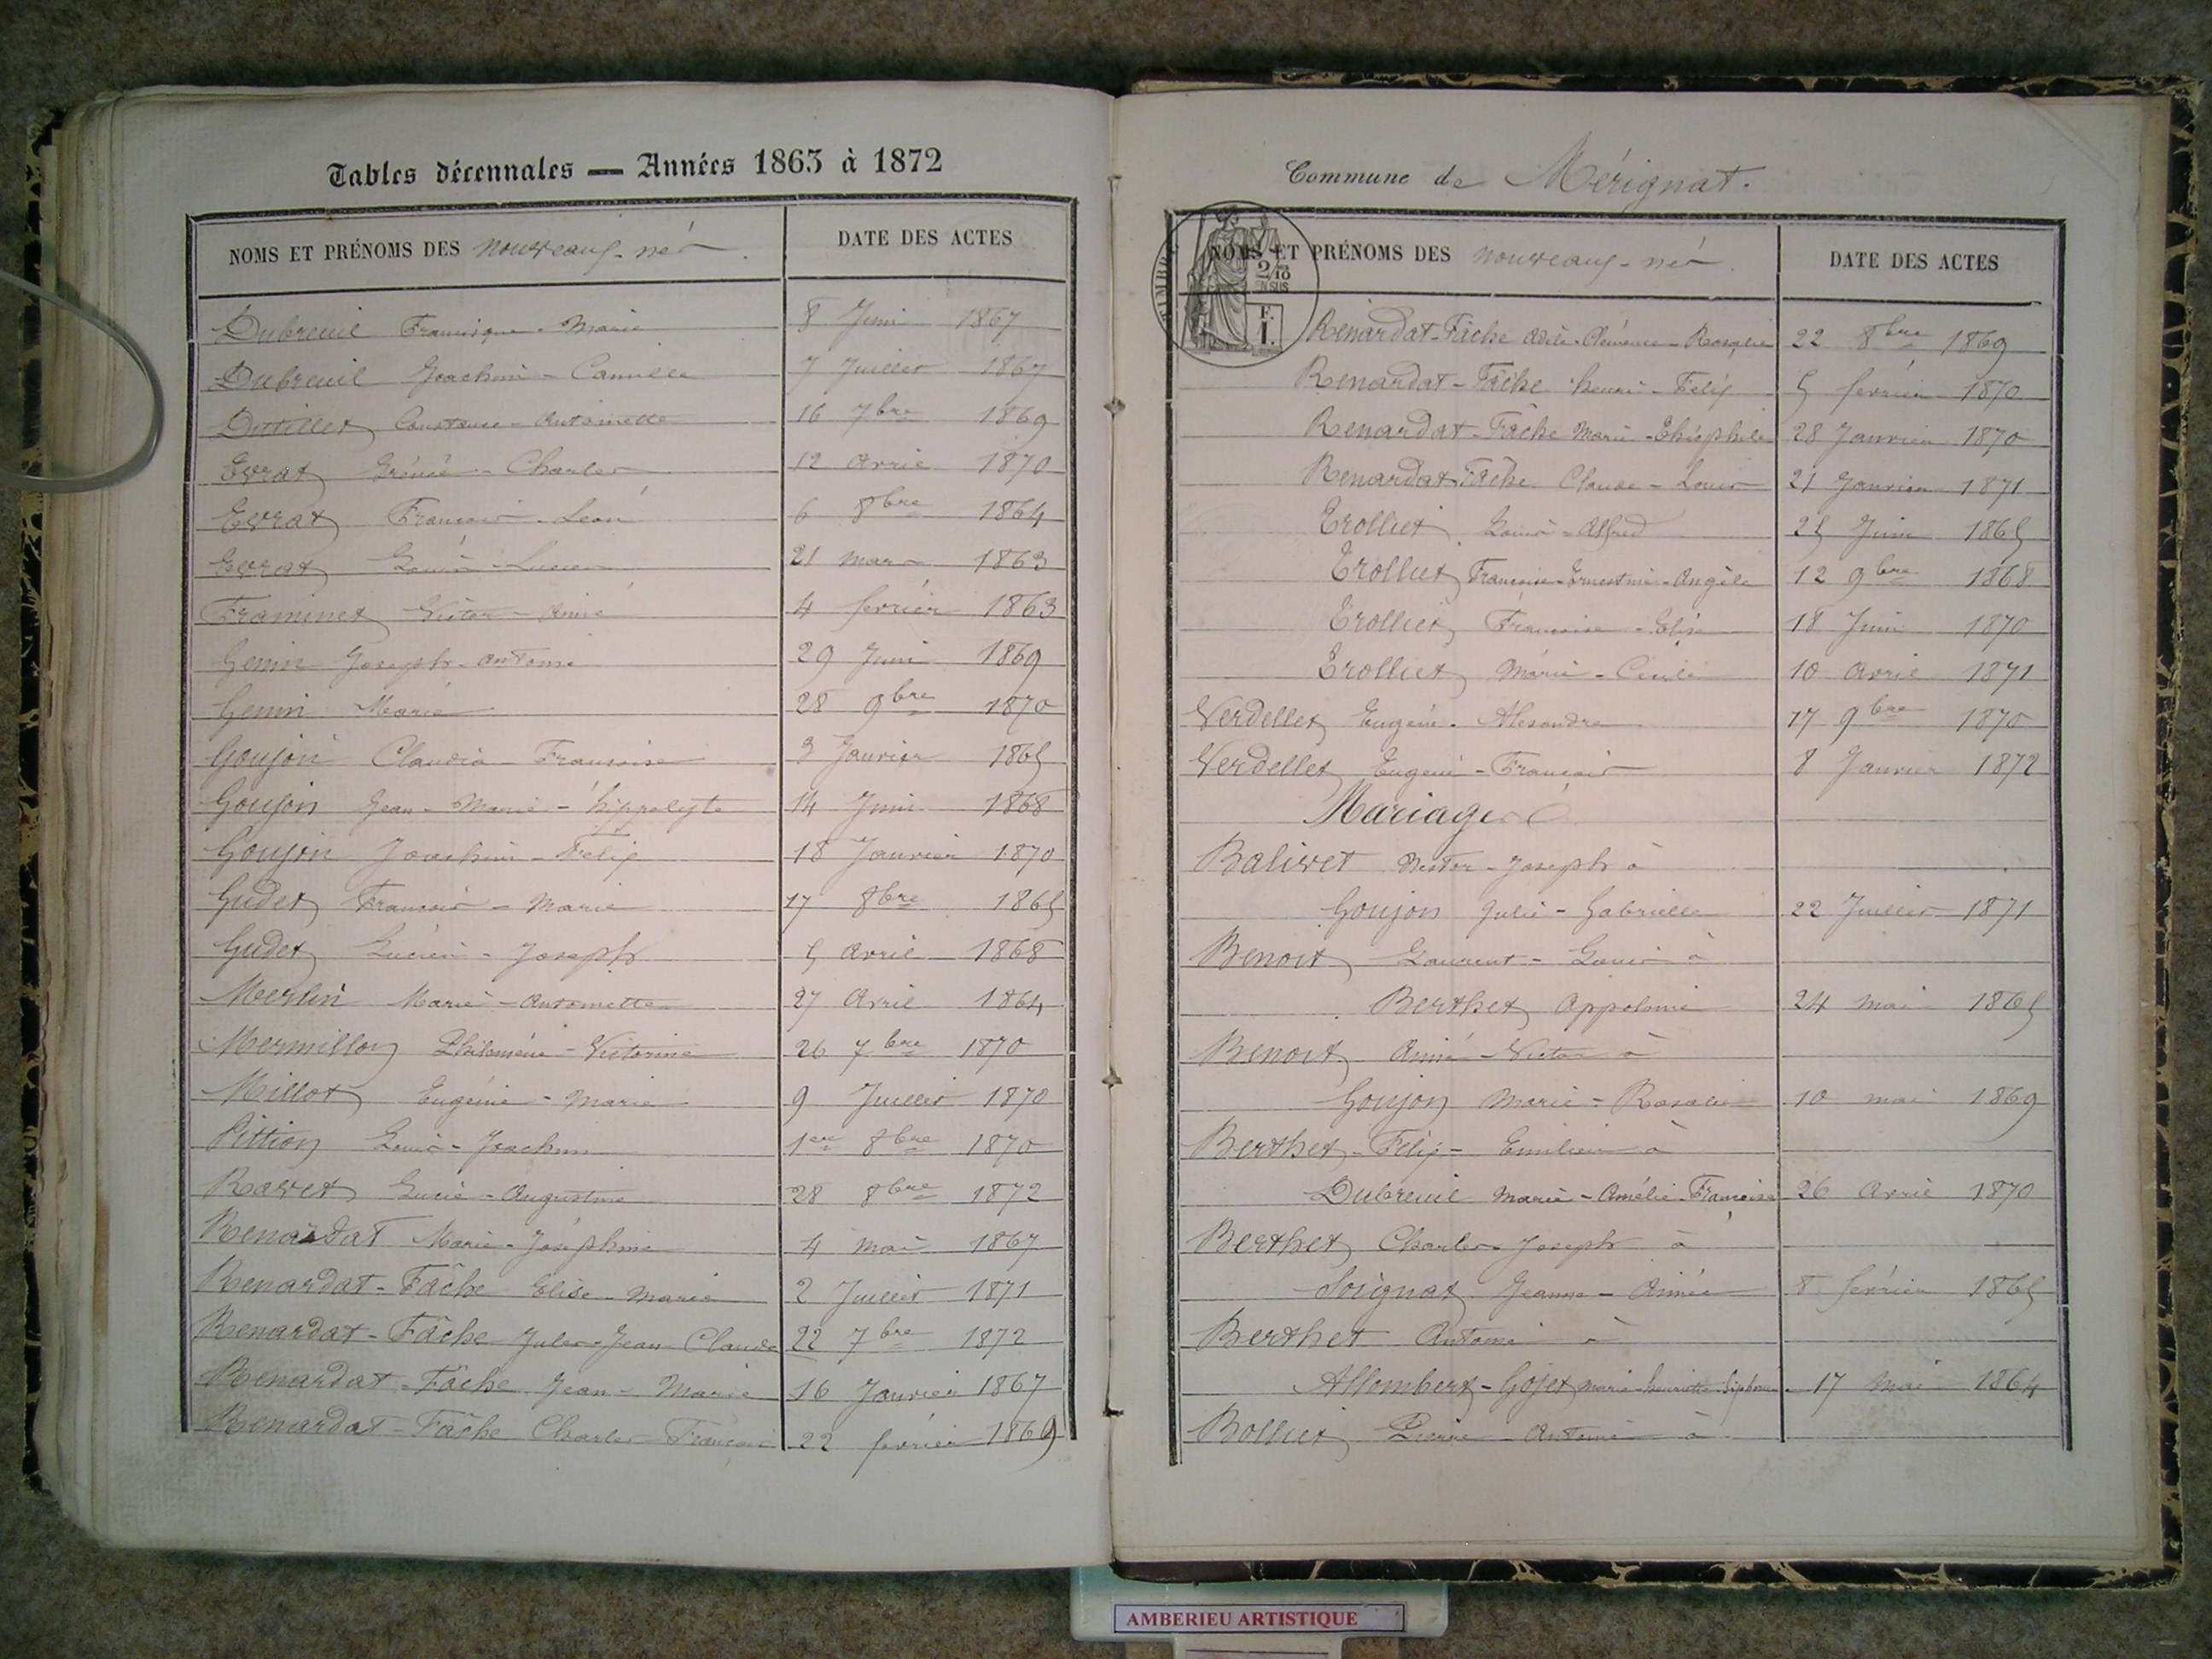 Tables décennales — Années 1863 à 1872
NOMS ET PRÉNOMS DES nouveaux-nés DATE DES ACTES
Dubreuil Francisque-Marie 8 Juin 1867
Dubreuil Joachim-Camille 7 Juillet 1867
Dutillet Constance-Antoinette 16 7bre 1869
Evrat Irénée-Charles 12 avril 1870
Evrat François-Léon 6 8bre 1864
Evrat Louis-Lucien 21 mars 1863
Framinet Victor-Aimé 4 février 1863
Genin Joseph-Antoine 29 Juin 1869
Genin Marie 28 9bre 1870
Goujon Claudia-Françoise 3 Janvier 1865
Goujon Jean-Marie-hippolyte 14 Juin 1868
Goujon Joachim-Félix 18 Janvier 1870
Gudet François-Marie 17 8bre 1865
Gudet Lucien-Joseph 5 avril 1868
Merlin Marie-Antoinette 27 Avril 1864
Mermillon Philomène-Victorine 26 7bre 1870
Millot Eugénie-Marie 9 Juillet 1870
Pittion Louis-Joachim 1er 8bre 1870
Ravet Lucie-Augustine 28 8bre 1872
Renardat Marie-Joséphine 4 mai 1867
Renardat-Fâche Elise-Marie 2 Juillet 1871
Renardat-Fâche Jules-Jean-Claude 22 7bre 1872
Renardat-Fâche Jean-Marie 16 Janvier 1867
Renardat-Fâche Charles-François 22 février 1869
Commune de Mérignat.
TIMBRE
2/10 EN SUS
F. 1.
NOMS ET PRÉNOMS DES nouveaux-nés DATE DES ACTES
Renardat-Fâche Adèle-Clémence-Rosalie 22 8bre 1869
Renardat-Fâche henri-Félix 5 février 1870
Renardat-Fâche Marie-Théophile 28 Janvier 1870
Renardat-Fâche Claude-Louis 21 Janvier 1871
Trolliet Louis-Alfred 25 Juin 1865
Trolliet Françoise-Ernestine-Angèle 12 9bre 1868
Trolliet Françoise-Elise 18 Juin 1870
Trolliet Marie-Cécile 10 avril 1871
Verdellet Eugène-Alexandre 17 9bre 1870
Verdellet Eugène-François 8 Janvier 1872
Mariages
Balivet Nestor-Joseph à
Goujon Julie-Gabrielle 22 Juillet 1871
Benoit Laurent-Louis à
Berthet Appolonie 24 mai 1865
Benoit Aimé-Victor à
Goujon Marie-Rosalie 10 mai 1869
Berthet-Félix-Emilien à
Dubreuil Marie-Amélie-Françoise 26 Avril 1870
Berthet Charles-Joseph à
Soignat Jeanne-Aimée 8 février 1865
Berthet Antoine à
Allombert-Gojet marie-henriette 17 mai 1864
Bolliet Pierre-Antoine à
AMBERIEU ARTISTIQUE